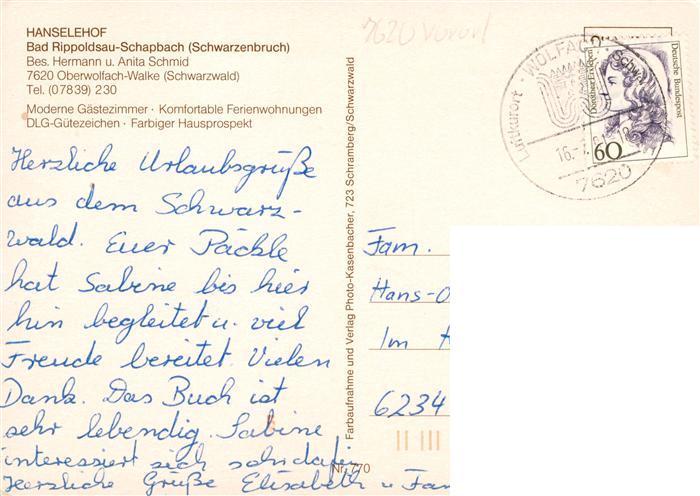 HANSELEHOF
Bad Rippoldsau-Schapbach (Schwarzenbruch)
Bes. Hermann u. Anita Schmid
7620 Oberwolfach-Walke (Schwarzwald)
Tel. (07839) 230
Moderne Gästezimmer · Komfortable Ferienwohnungen
DLG-Gütezeichen · Farbiger Hausprospekt
Herzliche Urlaubsgrüße
aus dem Schwarz-
wald. Euer Päckle
hat Sabine bis hier
hin begleitet u. viel
Freude bereitet. Vielen
Dank. Das Buch ist
sehr lebendig. Sabine
interessiert sich sehr dafür
Herzliche Grüße Elisabeth u Fam
Farbaufnahme und Verlag Photo-Kasenbacher, 723 Schramberg/Schwarzwald
Nr. 770
7620
Luftkurort · WOLFACH · Schw
16.-7.
7620
Deutsche Bundespost
Dorothea Erxleben
60
Fam.
Hans-O
Im H
6234